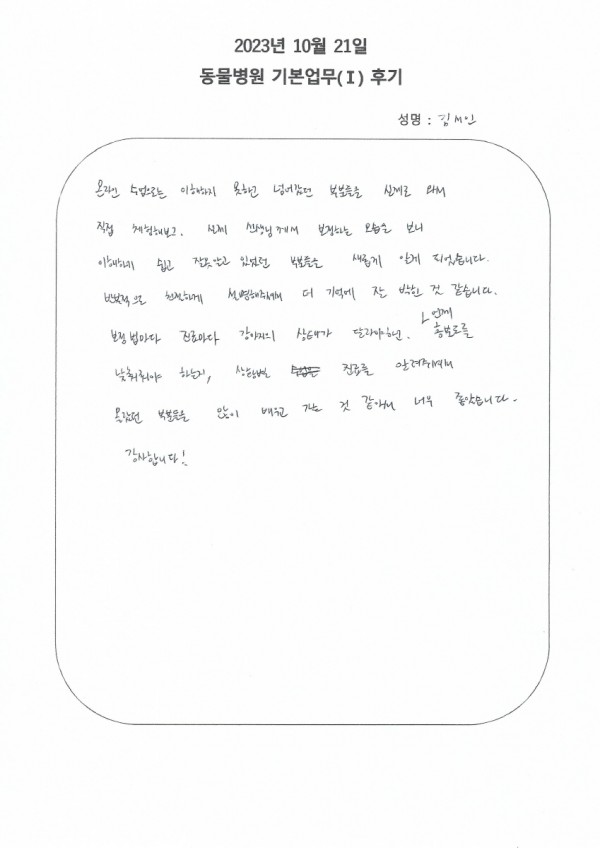 2023년 10월 21일
동물병원 기본업무(Ⅰ) 후기
성명 : 김서인
온라인 수업으로는 이해하지 못하고 넘어갔던 부분들을 실제로 와서
직접 체험해보고, 실제 선생님께서 보정하는 모습을 보니
이해하기 쉽고 잘못알고 있었던 부분들을 새롭게 알게 되었습니다.
반복적으로 천천히하게 설명해주셔서 더 기억에 잘 박힌 것 같습니다.
보정법마다 진료마다 강아지의 상태가 달라야하면
언제
홍보로를
낮춰줘야 하는지, 상황별 진료를 알려주셔서
몰랐던 부분들을 많이 배우고 가는 것 같아서 너무 좋았습니다.
감사합니다!